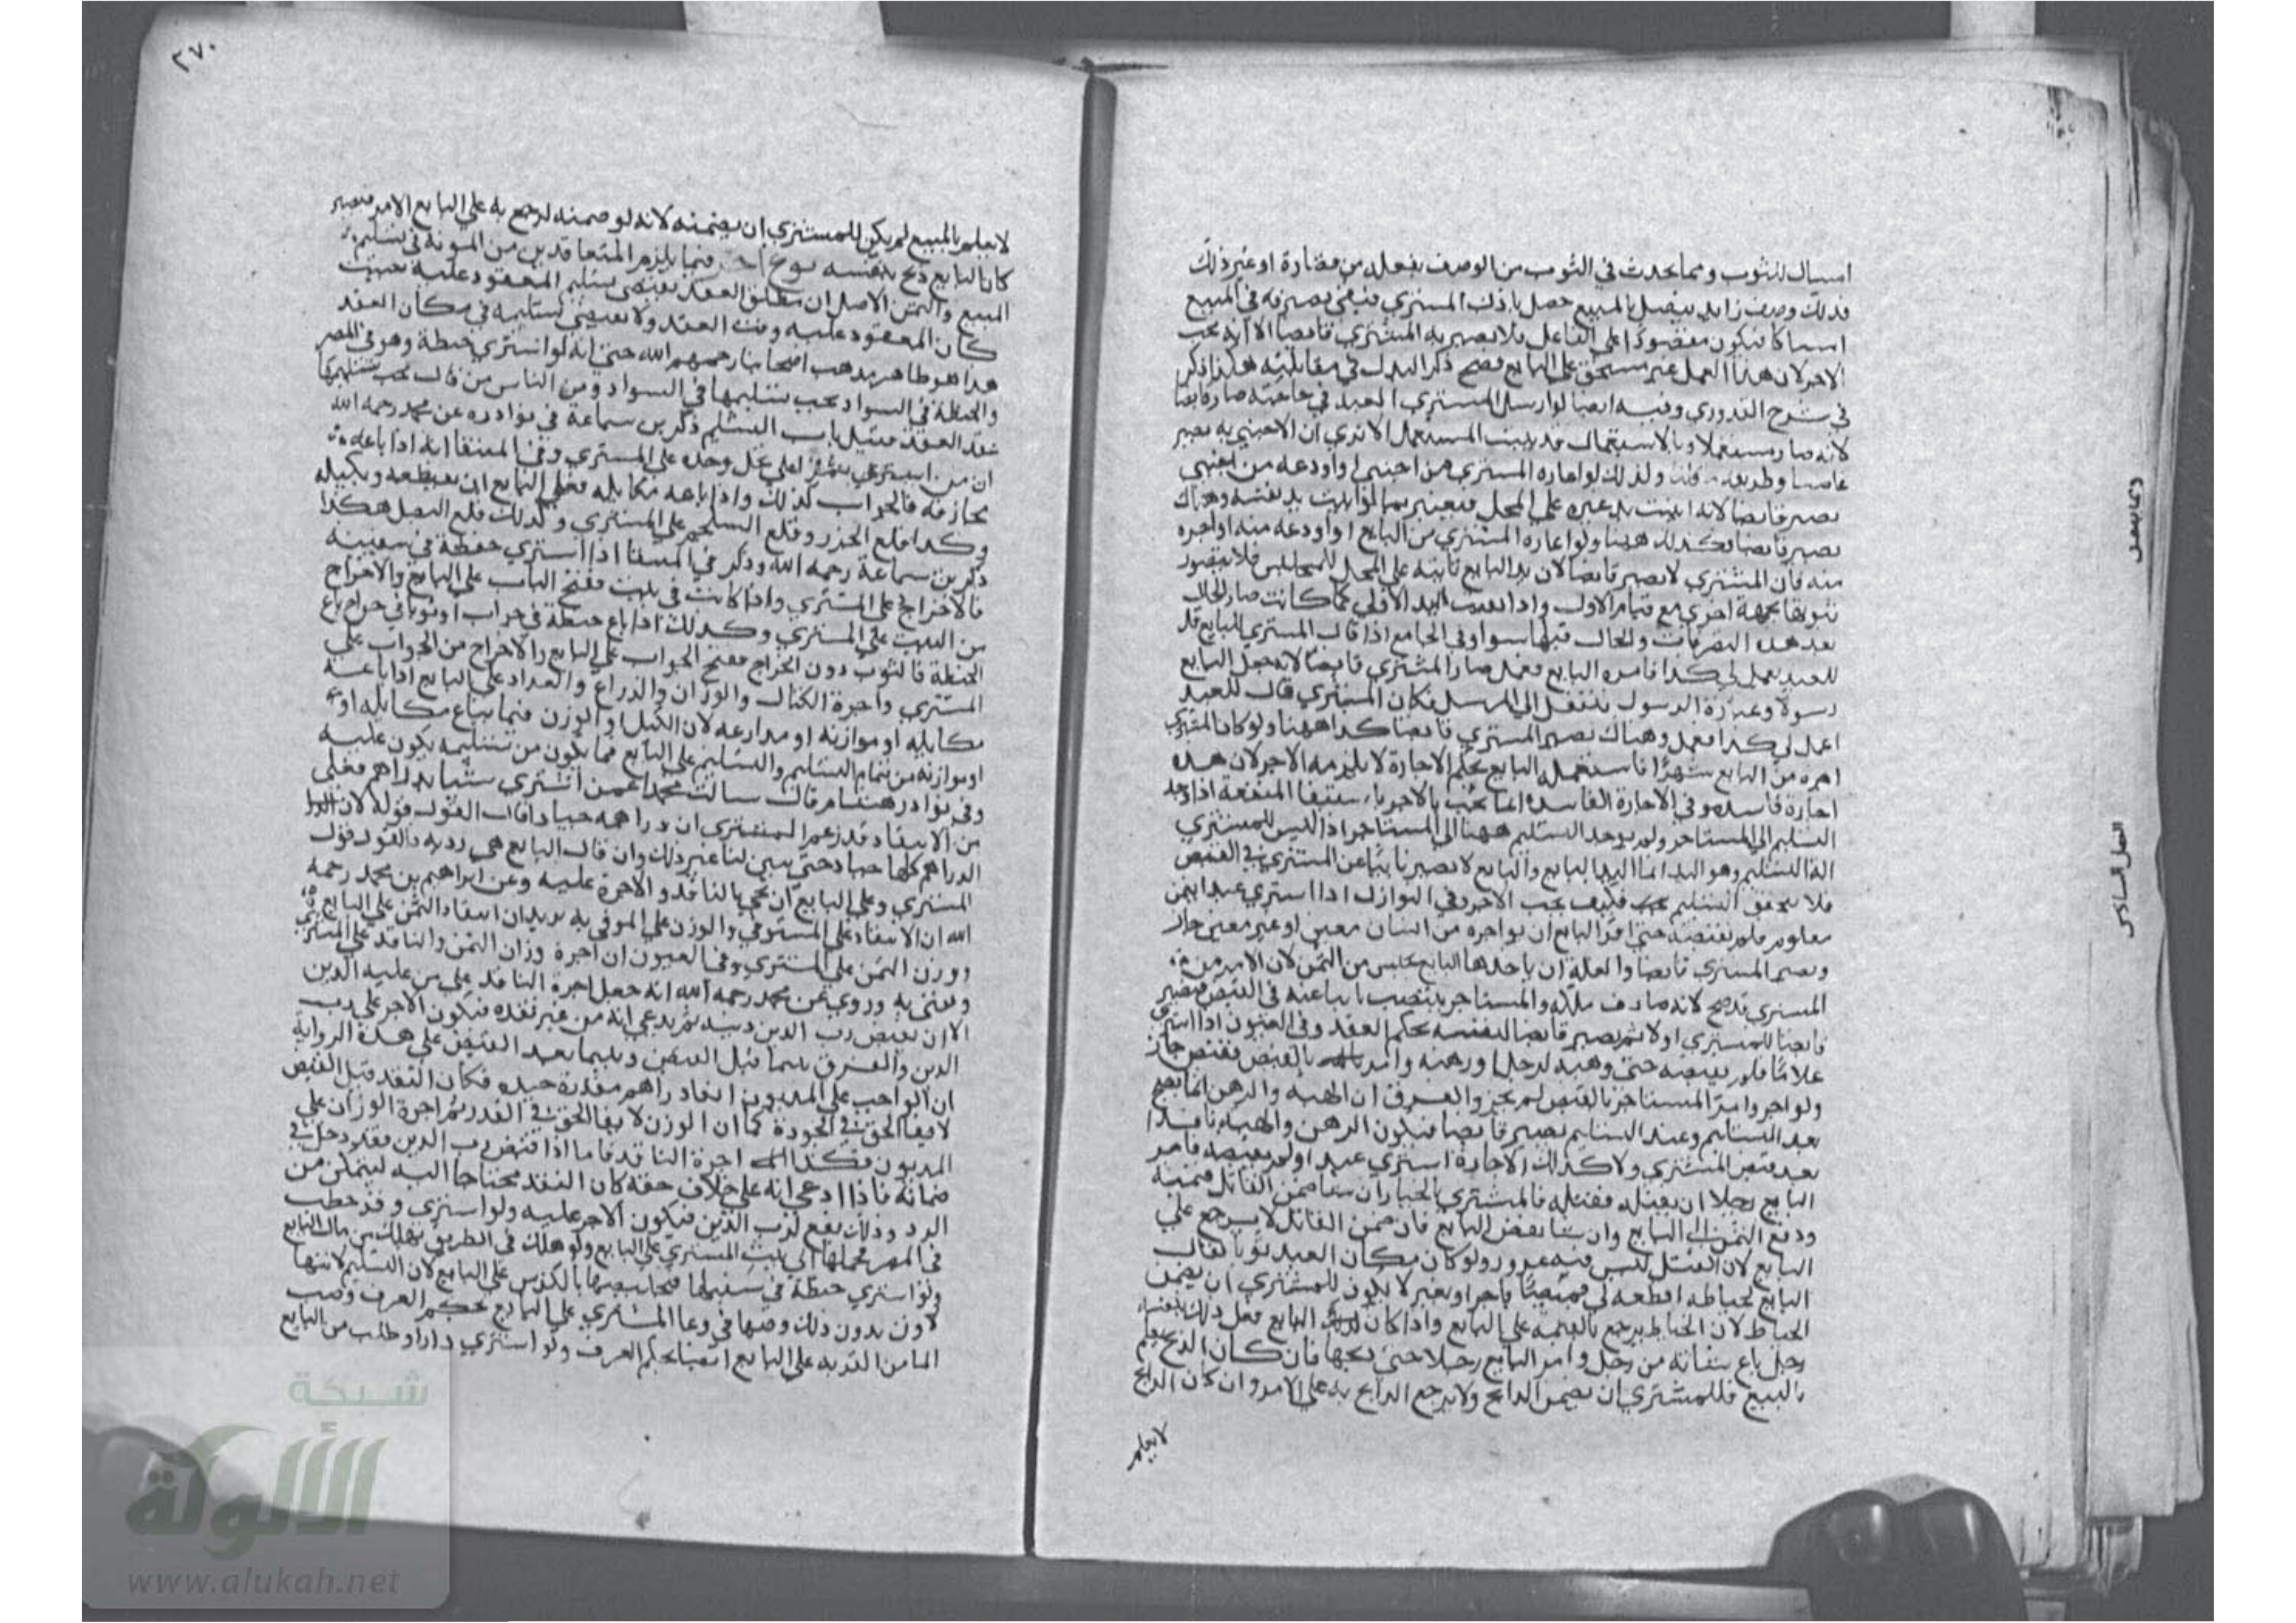 امساك للثوب ومما يحدث في الثوب من الوصف بفعله من قصارة او غير ذلك
فذلك وصف زايد يتصل بالمبيع حصل باذن المشتري
على الفاعل فلا يصير به المشتري قابضا الا انه يجب
الاجر لان هذا العمل غير مستحق على البايع فصح ذكر البدل في مقابلته هكذا ذكر
في شرح القدوري وفيه ايضا لو ارسل المشتري العبد في حاجته صار قابضا
لانه صار مستعملا وبالاستعمال يد المستعمل الا تري ان الاجنبي به يصير
غاصبا وكذلك لو اعاره المشتري من اجنبي او اودعه من اجنبي
يصير قابضا لانه اثبت يد غيره على المحل فيعتبر بما لو اثبت يد نفسه وهناك
يصير قابضا فكذلك ههنا ولو اعاره المشتري من البايع او اودعه منه او اجره
منه فان المشتري لا يصير قابضا لان يد البايع ثابتة على المحل فلا يتصور
ثبوتها بجهة اخرى مع قيام الاولى واذا بقيت اليد الاولى كما كانت صار الحال
بعد هذه التصرفات والحال قبلها سوا وفي الجامع اذا قال المشتري للبايع قل
للعبد يعمل لي كذا فامره البايع فعمل صار المشتري قابضا لانه جعل البايع
رسولا وعبارة الرسول تنتقل الى المرسل فكان المشتري قال للعبد
اعمل لي كذا فعمل وهناك يصير المشتري قابضا كذا ههنا ولو كان المشتري
اجره من البايع شهرا فاستعمله البايع بحكم الاجارة لا يلزمه الاجر لان هذه
اجارة فاسدة وفي الاجارة الفاسدة انما يجب الاجر باستيفا المنفعة اذا وجد
التسليم الى المستاجر ولم يوجد التسليم ههنا الى المستاجر اذ ليس للمشتري
الة التسليم وهو اليد انما اليد للبايع والبايع لا يصير نايبا عن المشتري في القبض
فلا يتحقق التسليم فكيف يجب الاجر وفي النوازل اذا اشترى عبدا بثمن
معلوم فلم يقبضه حتى امر البايع ان يواجره من انسان معين او غير معين جاز
ويصير المشتري قابضا والغلة ان ياخذها البايع من الثمن لان الامر من
المشتري قد صح لانه صادف ملكه والمستاجر ينتصب نايبا عنه في القبض فيصير
قابضا للمشتري اولا ثم يصير قابضا لنفسه بحكم العقد وفي العيون اذا اشترى
غلاما فلم يقبضه حتى وهبه لرجل او رهنه وامره بالقبض فقبض جاز
ولو اجر وامر المستاجر بالقبض لم يجز والفرق ان الهبة والرهن انما يصح
بعد التسليم وعند التسليم يصير قابضا فيكون الرهن والهبة نافذا
بعد قبض المشتري ولا كذلك الاجارة اشترى عبدا ولم يقبضه فامر
البايع رجلا ان يقتله فقتله فالمشتري بالخيار ان شا ضمن القاتل قيمته
ودفع الثمن الى البايع وان شا نقض البيع فان ضمن القاتل لا يرجع على
البايع لان القتل ليس فيه غرور ولو كان مكان العبد ثوبا فقال
البايع لخياط اقطعه لي قميصا باجر او بغير لا يكون للمشتري ان يضمن
الخياط لان الخياط يرجع بالقيمة على البايع واذا كان البايع فعل ذلك بنفسه
رجل باع شاة من رجل وامر البايع رجلا حتى ذبحها فان كان الذابح يعلم
بالبيع فللمشتري ان يضمن الذابح ولا يرجع الذابح به على الامر وان كان الذابح
لا يعلم
٢٧٠
لا يعلم بالمبيع لم يكن للمشتري ان يضمنه لانه لو ضمنه لرجع به على البايع الامر فيصير
كان البايع ذبح بنفسه نوع اخر فيما يلزم المتعاقدين من المونة في تسليم
المبيع والثمن الاصل ان مطلق العقد يقتضي تسليم المعقود عليه حيث
كان المعقود عليه وقت العقد ولا يقتضي تسليمه في مكان العقد
هذا هو ظاهر مذهب اصحابنا رحمهم الله حتى انه لو اشترى حنطة وهو في المصر
والحنطة في السواد يجب تسليمها في السواد ومن الناس من قال يجب تسليمها
عند العقد ذكر بن سماعة في نوادره عن محمد رحمه الله
ان من اشترى على نخل وجده على المشتري وفي المنتقا انه اذا باعه
مجازفة فالجواب كذلك واذا باعه مكايلة فعلى البايع ان يقطعه ويكيله
وكذا قلع الجزر وقلع السلجم على المشتري وكذلك قلع البصل هكذا
ذكر بن سماعة رحمه الله وذكر في المنتقا اذا اشترى حنطة في سفينة
فالاخراج على المشتري واذا كانت في بيت ففتح الباب على البايع والاخراج
من البيت على المشتري وكذلك اذا باع حنطة في جراب او ثوبا في جراب باع
الحنطة والثوب دون الجراب ففتح الجراب على البايع والاخراج من الجراب على
المشتري واجرة الكيال والوزان والذراع والعداد على البايع اذا باعه
مكايلة او موازنة او مذارعة لان الكيل والوزن فيما يباع مكايلة او
او موازنة من تمام التسليم والتسليم على البايع فما يكون من تسليمه يكون عليه
وفي نوادر هشام قال سالت محمدا عمن اشترى شيا بدراهم فعلى
من الانتقاد قد زعم المشتري ان دراهمه جياد قال القول قوله لان
الدراهم كلها جياد حتى يبين لنا غير ذلك وان قال البايع هي ردية فالقول قول
المشتري وعلى البايع ان يجي بالناقد والاجرة عليه وعن ابراهيم بن محمد رحمه
الله ان الانتقاد على المستوفي والوزن على الموفي به يريد ان انتقاد الثمن على البايع
ووزن الثمن على المشتري وفي العيون ان اجرة وزان الثمن والناقد على المشتري
وروي عن محمد رحمه الله انه جعل اجرة الناقد على من عليه الدين
الا ان يقبض رب الدين دينه ثم يدعي انه من غير نقده فيكون الاجر على رب
الدين والفرق بينما قبل القبض وبينما بعد القبض على هذه الرواية
ان الواجب على المديون ايفا دراهم جيدة فكان النقد قبل القبض
لايفا الحق في الجودة كما ان الوزن لايفا الحق في القدر ثم اجرة الوزان على
المديون فكذا اجرة الناقد فاما اذا قبض رب الدين فقد دخل في
ضمانه فاذا ادعى انه على خلاف حقه كان النقد محتاجا اليه ليتمكن من
الرد وذلك يقع لرب الدين فيكون الاجر عليه ولو اشترى وقر حطب
في المصر فحملها الى بيت المشتري على البايع ولو هلك في الطريق يهلك من مال البايع
ولو اشترى حنطة في سنبلها على البايع لان التسليم
بدون ذلك وصبها في وعا المشتري على البايع بحكم العرف وصب
الما من القربة على البايع ايضا بحكم العرف ولو اشترى دارا وطلب من البايع
شبكة
الألوكة
www.alukah.net